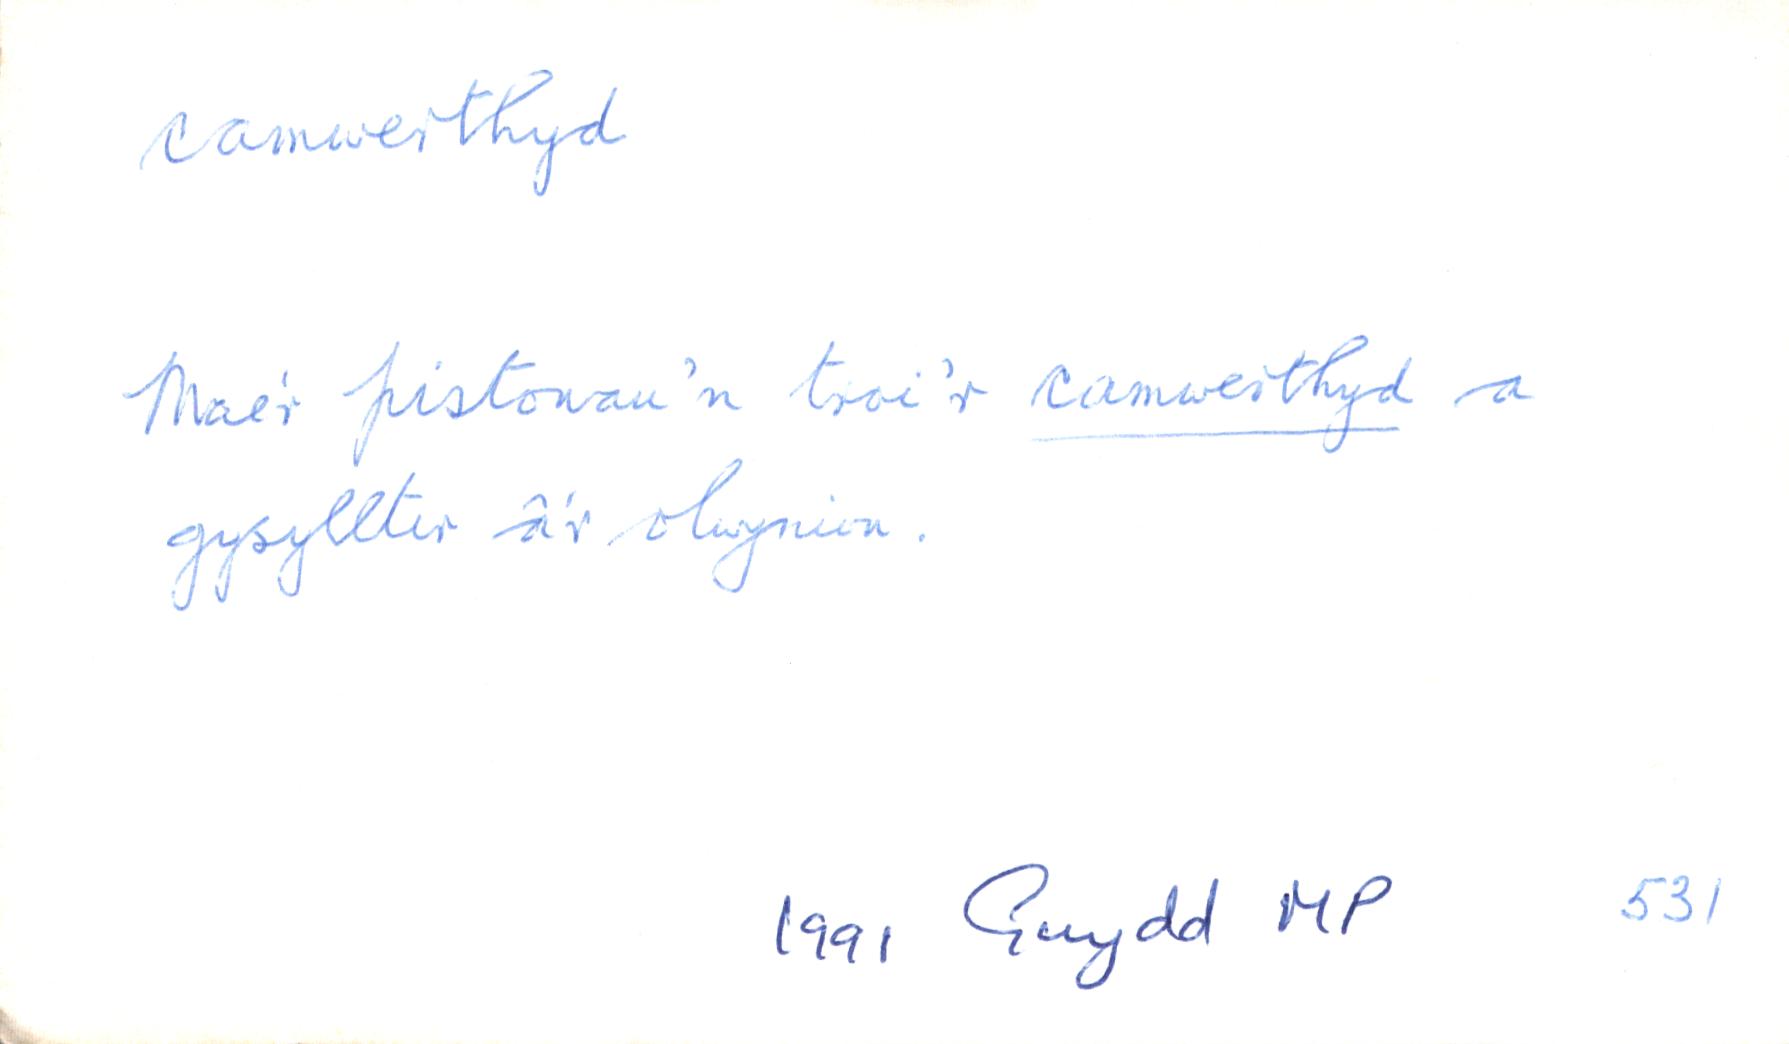 camwerthyd
Mae'r pistonau'n troi'r camwerthyd a
gysylltir â'r olwynion.
1991 Gwydd MP 531